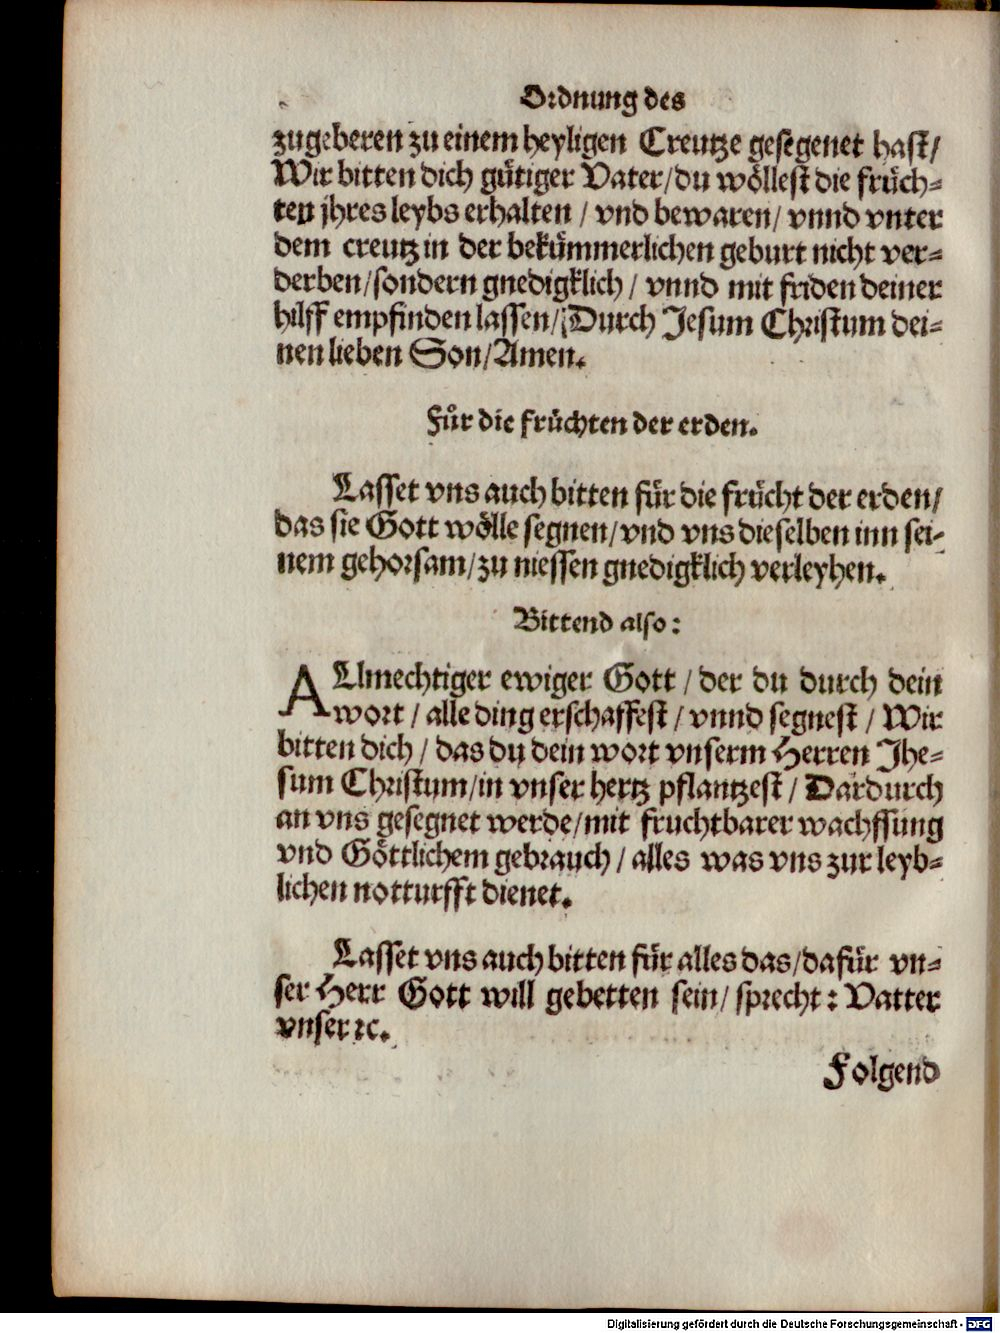 Ordnung des
zugeberen zu einem heyligen Creutze gesegenet hast/
Wir bitten dich gütiger Vater/du wöllest die früch-
ten jhres leybs erhalten / vnd bewaren/ vnnd vnter
dem creutz in der bekümmerlichen geburt nicht ver-
derben/sondern gnedigklich / vnnd mit friden deiner
hilff empfinden lassen/ Durch Jesum Christum dei-
nen lieben Son/Amen.
Fuͦr die früchten der erden.
Lasset vns auch bitten für die frücht der erden/
das sie Gott wölle segnen/vnd vns dieselben inn sei-
nem gehorsam/zu niessen gnedigklich verleyhen.
Bittend also:
ALlmechtiger ewiger Gott / der du durch dein
wort / alle ding erschaffest / vnnd segnest / Wir
bitten dich / das du dein wort vnserm Herren Jhe-
sum Christum/in vnser hertz pflantzest / Dardurch
an vns gesegnet werde/mit fruchtbarer wachssung
vnd Göttlichem gebrauch / alles was vns zur leyb-
lichen notturfft dienet.
Lasset vns auch bitten für alles das/dafür vn-
ser Herr Gott will gebetten sein/ sprecht: Vatter
vnser ꝛc.
Folgend
Digitalisierung gefördert durch die Deutsche Forschungsgemeinschaft - DFG